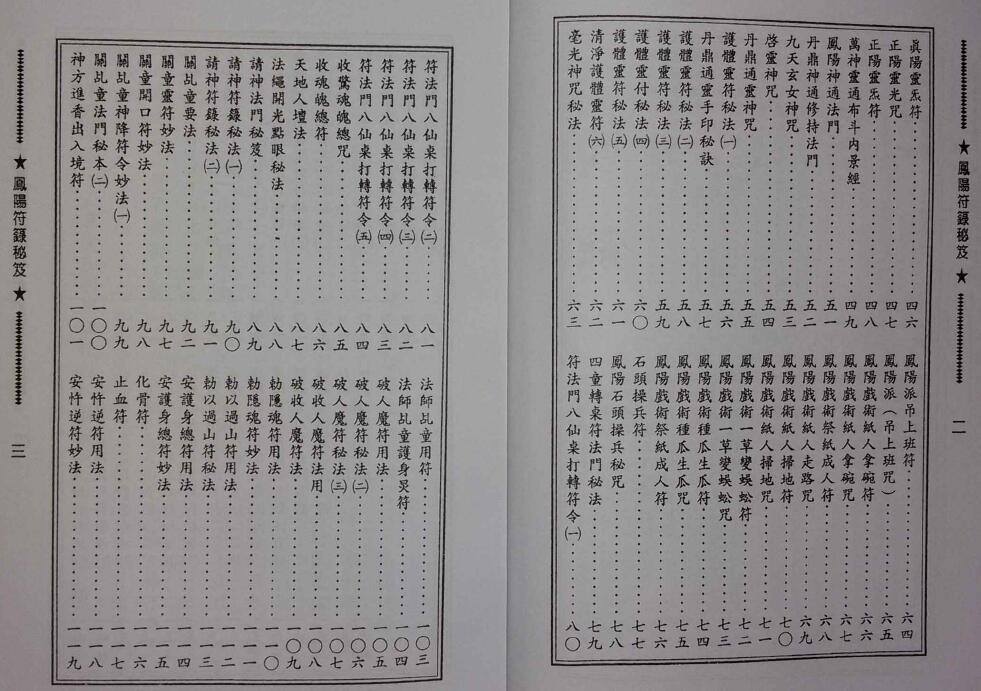 ★鳳陽符籙秘笈★
二
眞陽靈炁符 四六
正陽靈光咒 四七
正陽靈炁符 四八
萬神靈通布斗內景經 四九
鳳陽神通法門 五一
丹鼎神通修持法門 五二
九天玄女神咒 五三
啓靈神咒 五四
丹鼎通靈神咒 五五
護體靈符秘法(一) 五六
丹鼎通靈手印秘訣 五七
護體靈符秘法(二) 五八
護體靈符秘法(三) 五九
護體靈付秘法(四) 六〇
護體靈符秘法(五) 六一
清淨護體靈符(六) 六二
毫光神咒秘法 六三
鳳陽派吊上班符 六四
鳳陽派(吊上班咒) 六五
鳳陽戲術紙人拿碗符 六六
鳳陽戲術紙人拿碗咒 六七
鳳陽戲術祭紙成人符 六八
鳳陽戲術紙人走路咒 六九
鳳陽戲術紙人掃地符 七〇
鳳陽戲術紙人掃地咒 七一
鳳陽戲術一草變蜈蚣符 七二
鳳陽戲術一草變蜈蚣咒 七三
鳳陽戲術種瓜生瓜符 七四
鳳陽戲術種瓜生瓜咒 七五
鳳陽戲術祭紙成人符 七六
石頭操兵符 七七
鳳陽石頭操兵秘咒 七八
四童轉桌符法門秘法 七九
符法門八仙桌打轉符令(一) 八〇
★鳳陽符籙秘笈★
三
符法門八仙桌打轉符令(二) 八一
符法門八仙桌打轉符令(三) 八二
符法門八仙桌打轉符令(四) 八三
符法門八仙桌打轉符令(五) 八四
收驚魂魄總咒 八五
收魂魄總符 八六
天地人壇法 八七
法繩開光點眼秘法 八八
請神法門秘笈 八九
請神符籙秘法(一) 九〇
請神符籙秘法(二) 九一
關乩童要法 九二
關童靈符妙法 九七
關童開口符妙法 九八
關乩童神降符令妙法(一) 九九
關乩童法門秘本(二) 一〇〇
神方進香出入境符 一〇一
法師乩童護身用符 一〇三
法師乩童護身炅符 一〇四
破人魔符用法 一〇五
破人魔符秘法(二) 一〇六
破人魔符秘法(三) 一〇七
破收人魔符法用 一〇八
破收人魔符法 一〇九
勅隱魂符用法 一一〇
勅隱魂符妙法 一一一
勅以過山符用法 一一二
勅以過山符秘法 一一三
安護身總符用法 一一四
安護身總符妙法 一一五
化骨符 一一六
止血符 一一七
安忤逆符用法 一一八
安忤逆符妙法 一一九